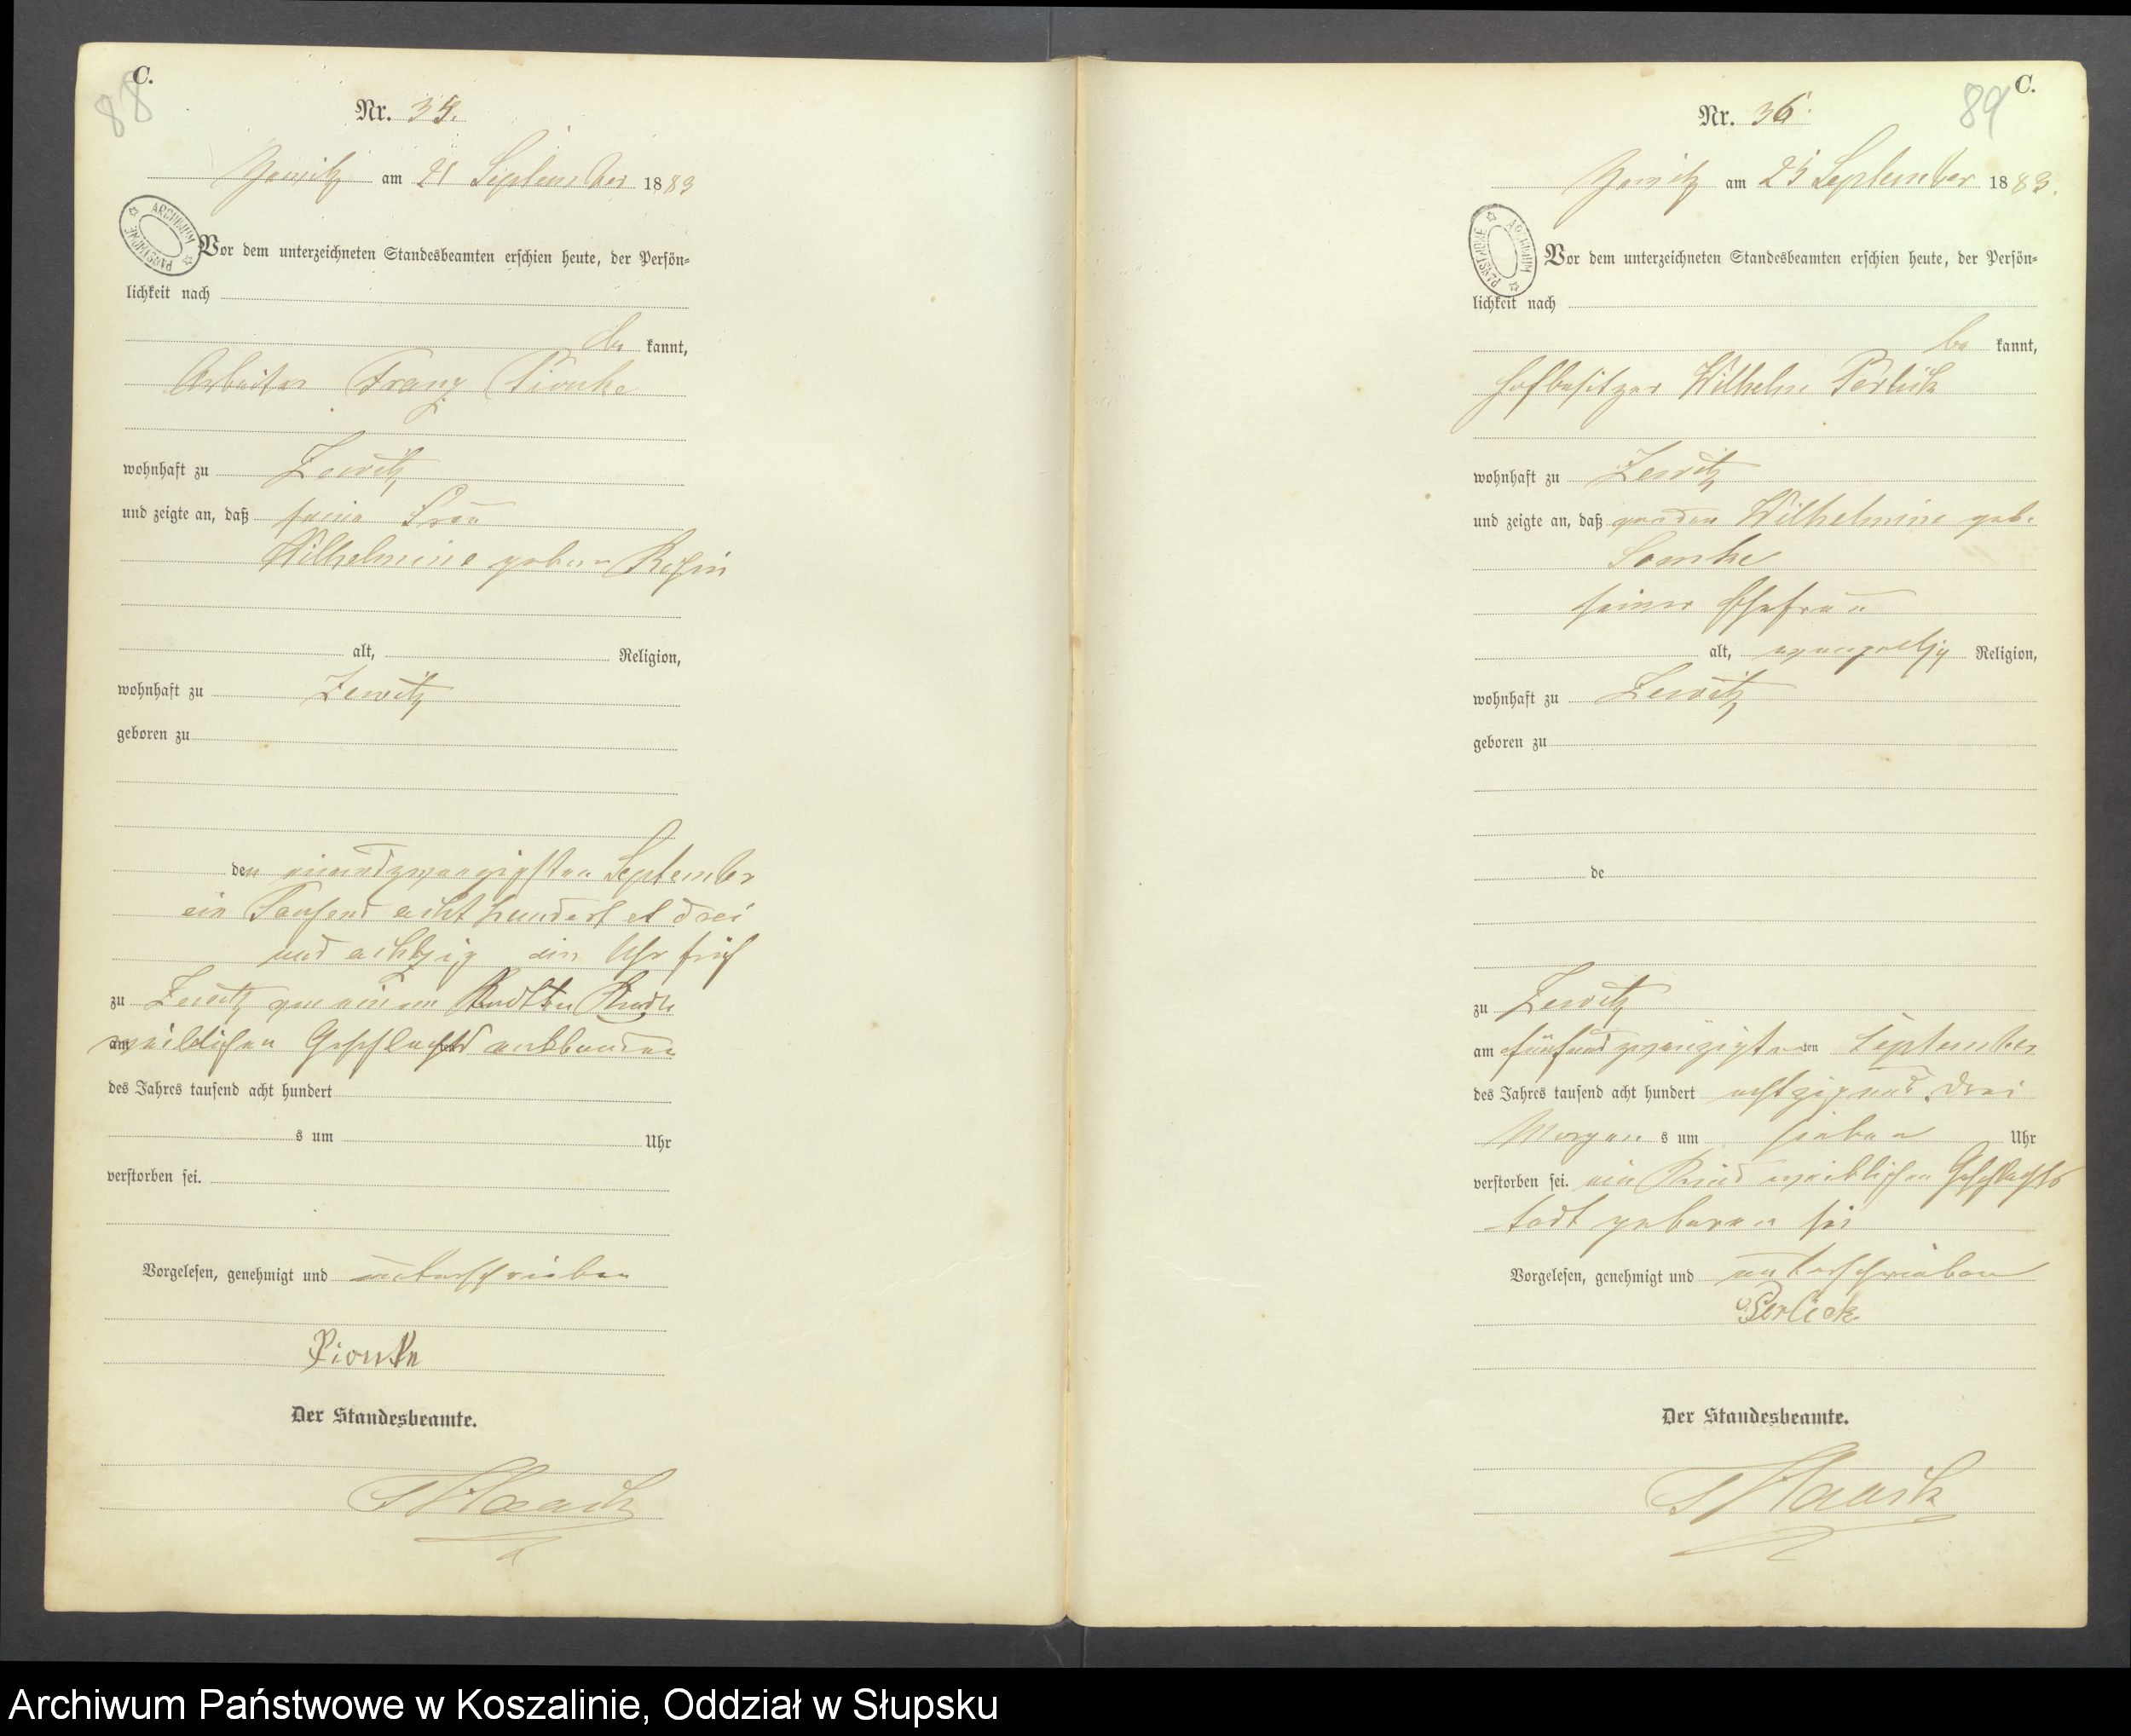 C.
88
Nr. 35.
am 21 September 1883
ARCHIWUM PAŃSTWOWE
Vor dem unterzeichneten Standesbeamten erschien heute, der Persön-
lichkeit nach
kannt,
Arbeiter Franz Pionke
wohnhaft zu Zewitz
und zeigte an, daß seine Frau
Wilhelmine geboren
alt, Religion,
wohnhaft zu Zewitz
geboren zu
den einundzwanzigsten September
ein Tausend acht hundert et drei
und achtzig ein Uhr früh
zu Zewitz von einem Kinde
weiblichen Geschlechts entbunden
des Jahres tausend acht hundert
s um Uhr
verstorben sei.
Vorgelesen, genehmigt und unterschrieben
Pionke
Der Standesbeamte.
89
C.
Nr. 36.
am 25 September 1883.
ARCHIWUM PAŃSTWOWE
Vor dem unterzeichneten Standesbeamten erschien heute, der Persön-
lichkeit nach
be kannt,
Hofbesitzer Wilhelm Perlick
wohnhaft zu Zewitz
und zeigte an, daß von der Wilhelmine geb.
seiner Ehefrau
alt, Religion,
wohnhaft zu Zewitz
geboren zu
de
zu Zewitz
am fünfundzwanzigsten ten September
des Jahres tausend acht hundert achtzig und drei
Morgen s um sieben Uhr
verstorben sei. ein Kind weiblichen Geschlechts
todt geboren sei
Vorgelesen, genehmigt und unterschrieben
Perlick
Der Standesbeamte.
Archiwum Państwowe w Koszalinie, Oddział w Słupsku